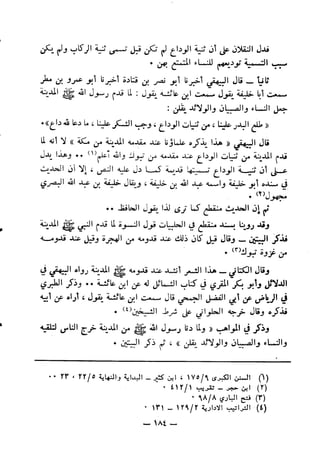 فدل النقلان على أن ثنية الوداع لم تكن قبل تسمى ثنية الركاب ولم يكن
سبب التسمية توديعهم للنساء المتمتع بهن •
ثانيا ــ قال البيهقي أخبرنا أبو نصر بن قتادة أخبرنا أبو عمرو بن مطر
سمعت أبا خليفة يقول سمعت ابن عائشة يقول : لما قدم رسول الله ﷺ المدينة
جعل النساء والصبيان والولائد يقلن :
« طلع البدر علينا ، من ثنيات الوداع ، وجب الشكر علينا ، ما دعا لله داع»•
قال البيهقي « هذا يذكره علماؤنا عند مقدمه المدينة من مكة » لا أنه لما
قدم المدينة من ثنيات الوداع عند مقدمه من تبوك والله أعلم(١) •• وهذا يدل
على أن ثنيــة الوداع تسميتها قديمة كمــا دل عليه النص ، إلا أن الحديث
في سنده أبو خليفة واسمه عبد الله بن خليفة ، ويقال خليفة بن عبد الله البصري
مجهول(٢) •
ثم إن الحديث منقطع كما ترى لذا يقول الحافظ ••
وقد روينا بسند منقطع في الحلبيات قول النسوة لما قدم النبي ﷺ المدينة
فذكر البيتين ــ وقال قيل كان ذلك عند قدومه من الهجرة وقيل عند قدومــه
من غزوة تبوك(٣) •
وقال الكتاني ــ هذا الشعر أنشد عند قدومه ﷺ المدينة رواه البيهقي في
الدلائل وأبو بكر المقري في كتاب الشمائل له عن ابن عائشة •• وذكر الطبري
في الرياض عن أبي الفضل الجمحي قال سمعت ابن عائشة يقول ، أراه عن أبيه
فذكره وقال خرجه الحلواني على شرط الشيخين(٤) •
وذكر في المواهب « ولما دنا رسول الله ﷺ من المدينة خرج الناس لتلقيه
والنساء والصبيان والولائد يقلن » ، ثم ذكر البيتين •
(١) السنن الكبرى ١٧٥/٩ ، ابن كثير ــ البداية والنهاية ٢٢/٥ ، ٢٣ ••
(٢) ابن حجر ــ تقريب ٤١٢/١ •
(٣) فتح الباري ٩٨/٨ •
(٤) التراتيب الادارية ١٢٩/٢ ــ ١٣١ •
ــ ١٨٤ ــ